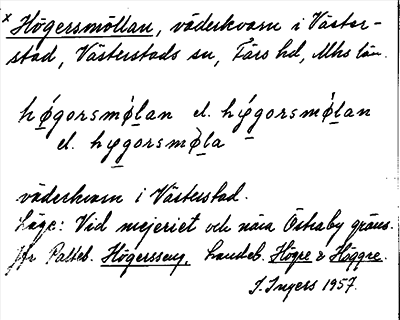 x Högersmöllan, väderkvarn i Väster-
stad, Västerstads sn, Färs hd, Mhs län.
hǿgorsmø̀lan el. hýgorsmø̀lan
el. hygorsmø̀la
väderkvarn i Västerstad.
Läge: Vid mejeriet och nära Östraby gräns.
Jfr Palteb. Högerssen, Landeb. Högre & Höggre.
I. Ingers 1957.